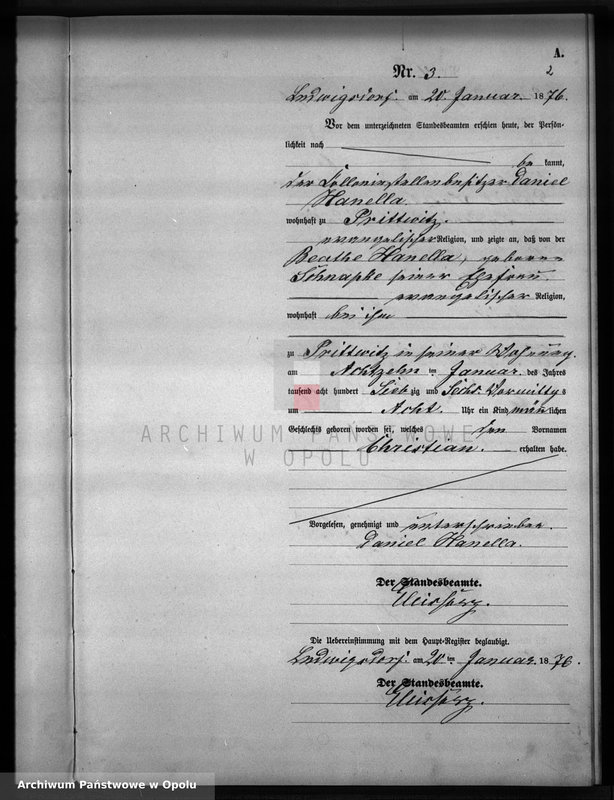 A.
Nr. 3.
2
Ludwigsdorf am 20. Januar 1876.
Vor dem unterzeichneten Standesbeamten erschien heute, der Persön-
lichkeit nach
be kannt,
der Daniel
Hanella
wohnhaft zu Prittwitz.
evangelischer Religion, und zeigte an, daß von der
Beathe Hanella, geborene
Schnapke seiner Ehefrau
evangelischer Religion,
wohnhaft bei ihm
zu Prittwitz in seiner Wohnung.
am Achtzehn ten Januar des Jahres
tausend acht hundert Sieb zig und Sechs Vormittags
um Acht Uhr ein Kind männ lichen
Geschlechts geboren worden sei, welches den Vornamen
Christian. erhalten habe.
ARCHIWUM PAŃSTWOWE
W OPOLU
Vorgelesen, genehmigt und unterschrieben.
Daniel Hanella.
Der Standesbeamte.
Die Uebereinstimmung mit dem Haupt-Register beglaubigt.
Ludwigsdorf am 20 ten Januar 1876.
Der Standesbeamte.
Archiwum Państwowe w Opolu